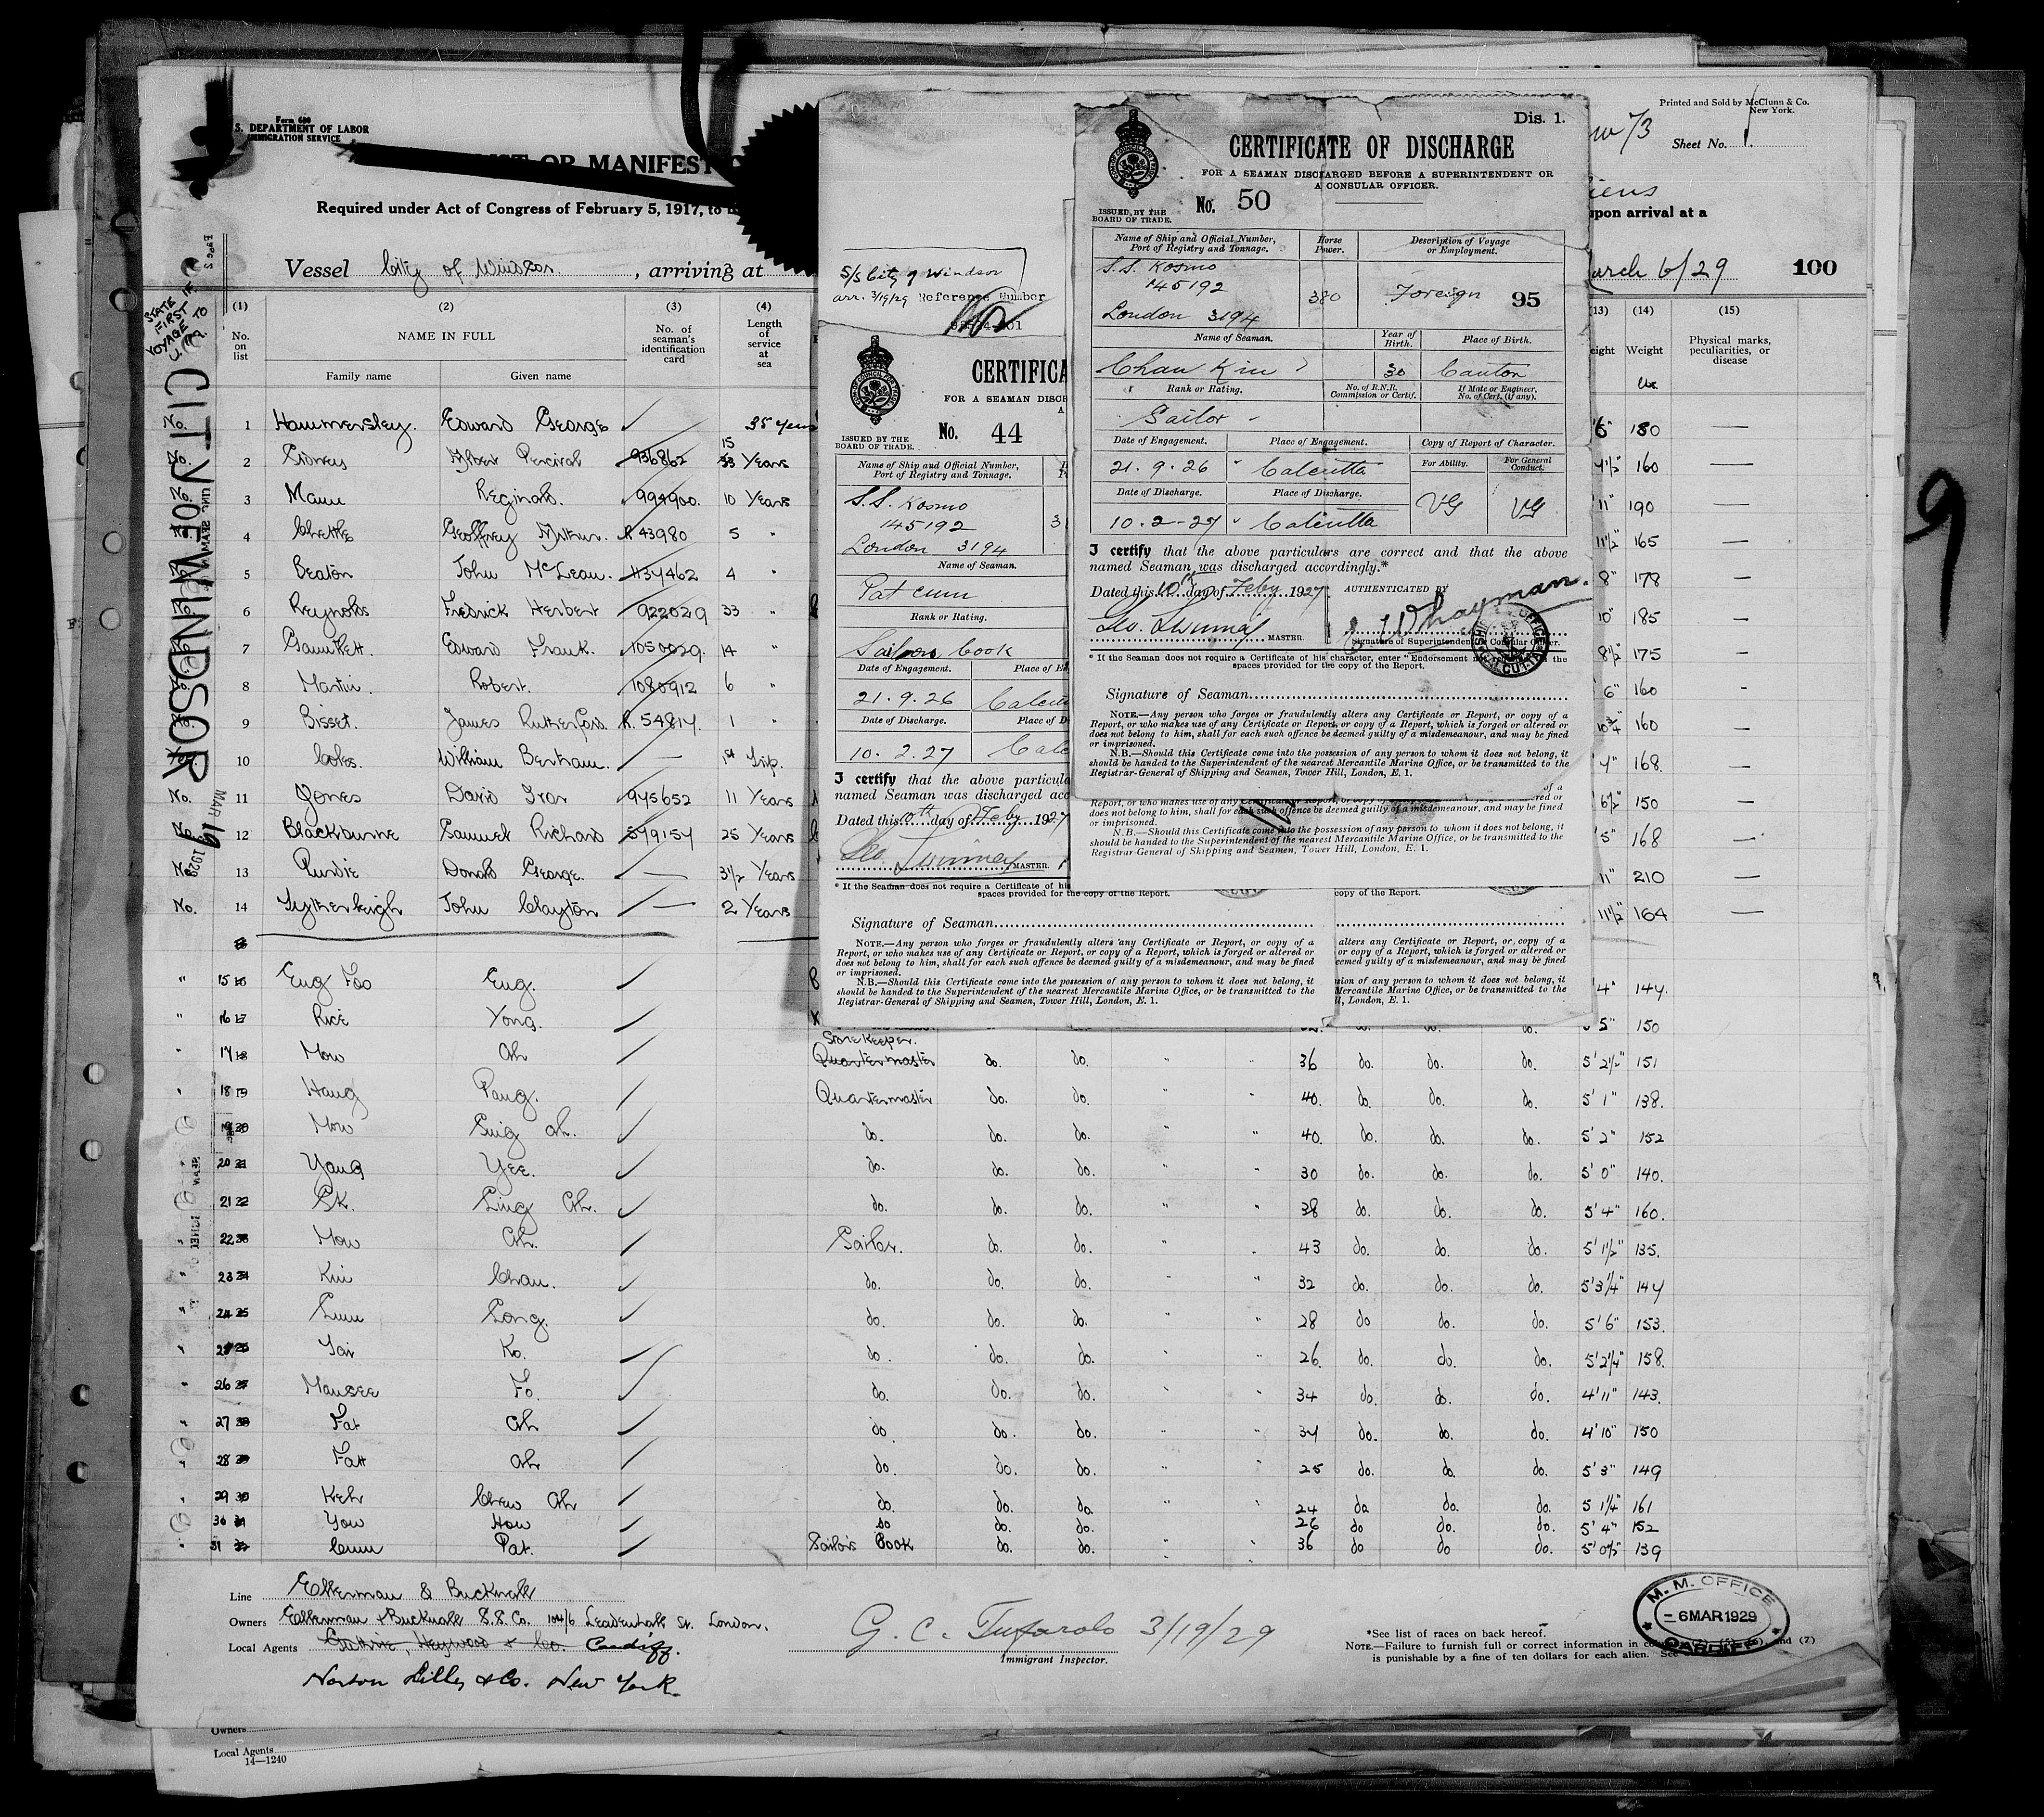 Form 680
S. DEPARTMENT OF LABOR
IMMIGRATION SERVICE
OR MANIFEST
Required under Act of Congress of February 5, 1917, to
Vessel City of Windsor , arriving at
Printed and Sold by McClunn & Co.
New York.
Sheet No. 1
upon arrival at a
March 6/29 100
STATE IF FIRST VOYAGE TO U.S.A.
CITY OF WINDSOR
MAR 19 1929
(1) (2) (3) (4) (13) (14) (15)
No. on list
NAME IN FULL
Family name Given name
No. of seaman's identification card
Length of service at sea
Weight
Physical marks, peculiarities, or disease
No. 1 Hammersley. Edward George 35 years 180 —
No. 2 Albert Percival 936862 15 Years 160 —
No. 3 Mann Reginald. 994900. 10 Years 11" 190 —
4 Geoffrey Arthur. R 43980 5 " 11½" 165 —
5 Beaton John McLean. 1137462 4 " 8" 178 —
6 Reynolds Fredrick Herbert 922029 33 " 10" 185 —
7 Edward Frank. 1050029. 14 " 8½" 175 —
8 Martin. Robert. 1080912 6 " 6" 160 -
9 Bisset. James Rutherford. R. 54817. 1 " 10¾" 160 —
10 Coles. William Bertram. — 1st Trip. 4" 168. —
No. 11 Jones David Ivor 945652 11 Years 6½" 150 —
No. 12 Blackburne Samuel Richard 579157 25 Years 5" 168 —
No. 13 Purdie Donald George. — 3½ Years 11" 210 —
No. 14 Lytherleigh John Clayton — 2 Years 11½" 164 —
" 15 Eng Foo Eng. 4" 147.
" 16 Rice Yong. 5" 150
Storekeper.
" 17 Mow Ah Quartermaster do. do. " " 36 do. do. do. 5' 2½" 151
" 18 Hang Pang. Quartermaster do. do. " " 40. do. do. do. 5' 1" 138.
19 Mow Sing Ah. do. do. do. " " 40. do. do. do. 5' 2" 152
20 Yang Yee. do. do. do. " " 30 do. do. do. 5' 0" 140.
21 Sk. Ling Ah. do. do. do. " " 38 do. do. do. 5' 4" 160.
22 Mow Ah. Sailor. do. do. " " 43 do. do. do. 5' 1½" 135.
" 23 Kin Chan. do. do. do. " " 32 do. do. do. 5' 3¼" 147
" 24 Long. do. do. do. " " 28 do do. do. 5' 6" 153.
" 25 Tai Ko. do. do. do. " " 26. do. do. do. 5' 2¼" 158.
" 26 Mansee Fo. do. do. do. " " 34 do. do. do. 4' 11" 143.
" 27 Fat Ah do. do. do. " " 34 do. do. do. 4' 10" 150
" 28 Fatt Ah do. do. do. " " 25 do. do. do. 5' 3" 149
" 29 Keh Chew Ah do. do. do. " " 24 do do. do. 5 1¼" 161
" 30 You How do do. do. 26 do do. do. 5' 4" 152
" 31 Cunn Pat. Sailor's Cook do. do. " " 36 do do do. 5' 0½" 139
Line Ellerman & Bucknall
Owners Ellerman & Bucknall S.S. Co. 104/6 Leadenhall St. London.
Local Agents Guthrie, Heywood & Co. Cardiff.
Norton Lilly & Co. New York.
G. C. Tufarolo 3/19/29
Immigrant Inspector.
*See list of races on back hereof.
NOTE.—Failure to furnish full or correct information in and (7)
is punishable by a fine of ten dollars for each alien. See
M. M. OFFICE
- 6 MAR 1929
CARDIFF
Owners
Local Agents
14—1240
S/S City of Windsor
arr. 3/19/29 Reference Number
CERTIFICA
FOR A SEAMAN DISCH
ISSUED BY THE
BOARD OF TRADE.
No. 44
Name of Ship and Official Number,
Port of Registry and Tonnage.
S.S. Kosmo
145192
London 3194
Name of Seaman.
Pat cunn
Rank or Rating.
Sailors Cook
Date of Engagement. Place of E
21.9.26 Calcutta
Date of Discharge. Place of D
10.2.27 Calc
I certify that the above particula
named Seaman was discharged acc
Dated this 10th day of Feby 1927
MASTER.
* If the Seaman does not require a Certificate of his
spaces provided for the copy of the Report.
Signature of Seaman
NOTE.—Any person who forges or fraudulently alters any Certificate or Report, or copy of a
Report, or who makes use of any Certificate or Report, or copy of a Report, which is forged or altered or
does not belong to him, shall for each such offence be deemed guilty of a misdemeanour, and may be fined
or imprisoned.
N.B.—Should this Certificate come into the possession of any person to whom it does not belong, it
should be handed to the Superintendent of the nearest Mercantile Marine Office, or be transmitted to the
Registrar-General of Shipping and Seamen, Tower Hill, London, E. 1.
Dis. 1.
CERTIFICATE OF DISCHARGE
FOR A SEAMAN DISCHARGED BEFORE A SUPERINTENDENT OR
A CONSULAR OFFICER.
ISSUED BY THE
BOARD OF TRADE.
No. 50
Name of Ship and Official Number,
Port of Registry and Tonnage.
Horse Power.
Description of Voyage
or Employment.
S.S. Kosmo
145192
London 3194
380
Foreign 95
Name of Seaman. Year of Birth. Place of Birth.
Chan Kin 30 Canton
Rank or Rating. No. of R.N.R. Commission or Certif. If Mate or Engineer, No. of Cert. (if any).
Sailor -
Date of Engagement. Place of Engagement. Copy of Report of Character.
21.9.26 Calcutta For Ability. For General Conduct.
Date of Discharge. Place of Discharge.
10.2-27 Calcutta VG VG
I certify that the above particulars are correct and that the above
named Seaman was discharged accordingly.*
Dated this 10th day of Feby 1927 AUTHENTICATED BY
MASTER.
Signature of Superintendent or Consular Officer.
* If the Seaman does not require a Certificate of his character, enter "Endorsement the
spaces provided for the copy of the Report.
Signature of Seaman
NOTE.—Any person who forges or fraudulently alters any Certificate or Report, or copy of a
Report, or who makes use of any Certificate or Report, or copy of a Report, which is forged or altered or
does not belong to him, shall for each such offence be deemed guilty of a misdemeanour, and may be fined
or imprisoned.
N.B.—Should this Certificate come into the possession of any person to whom it does not belong, it
should be handed to the Superintendent of the nearest Mercantile Marine Office, or be transmitted to the
Registrar-General of Shipping and Seamen, Tower Hill, London, E. 1.
Report, or who makes use of any Certificate or Report, or copy of a Report, which is forged or altered or
does not belong to him, shall for each such offence be deemed guilty of a misdemeanour, and may be fined
or imprisoned.
N.B.—Should this Certificate come into the possession of any person to whom it does not belong, it
should be handed to the Superintendent of the nearest Mercantile Marine Office, or be transmitted to the
Registrar-General of Shipping and Seamen, Tower Hill, London, E. 1.
copy of the Report.
alters any Certificate or Report, or copy of a
copy of a Report, which is forged or altered or
deemed guilty of a misdemeanour, and may be fined
sion of any person to whom it does not belong, it
Mercantile Marine Office, or be transmitted to the
ll, London, E. 1.
9